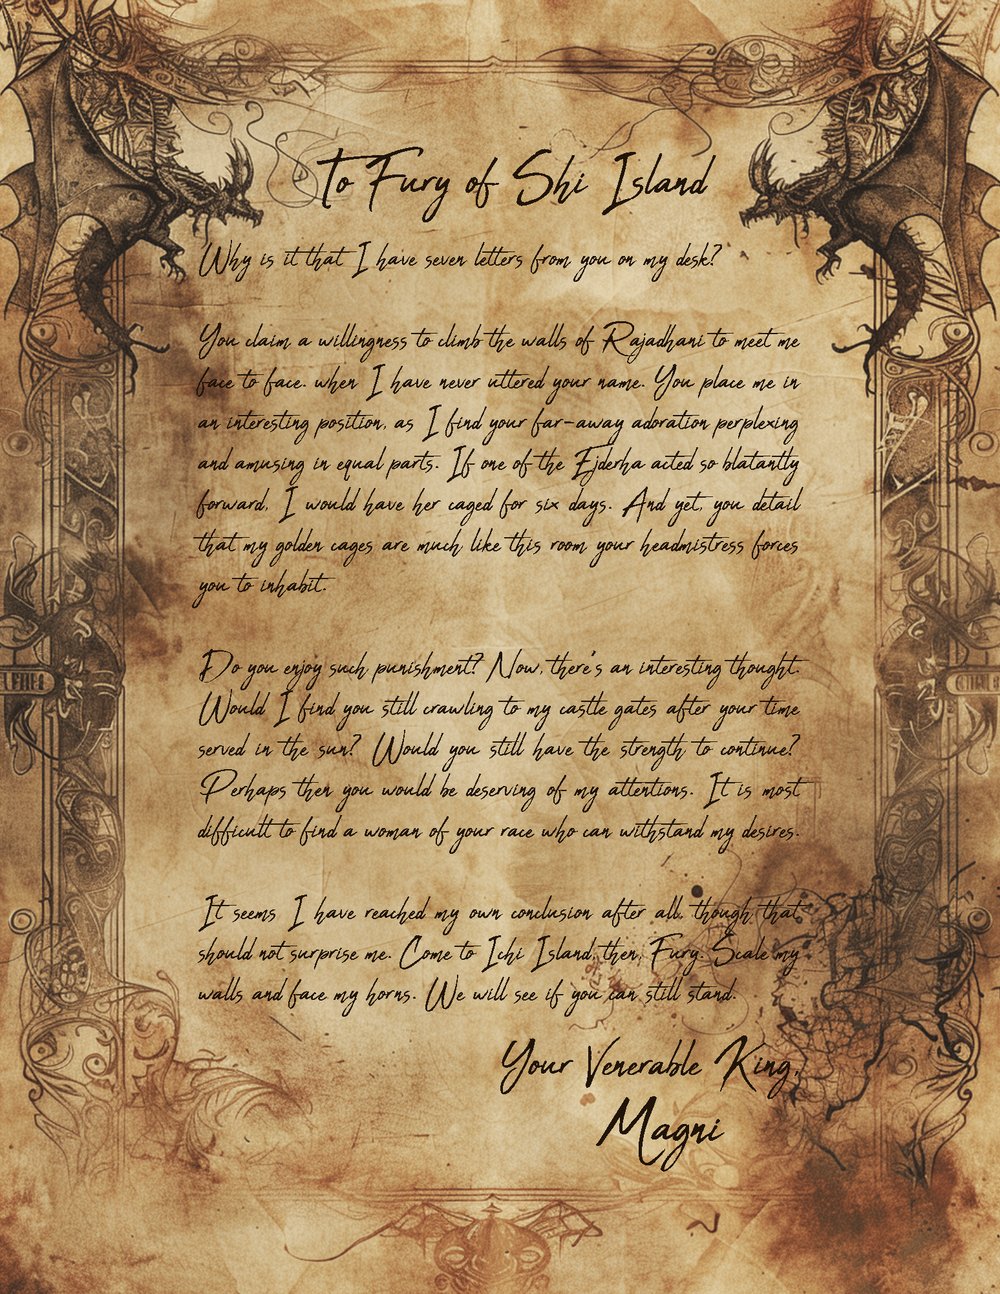 To Fury of Shi Island
Why is it that I have seven letters from you on my desk?
You claim a willingness to climb the walls of Rajadhani to meet me
face to face. when I have never uttered your name. You place me in
an interesting position, as I find your far-away adoration perplexing
and amusing in equal parts. If one of the Ejderha acted so blatantly
forward, I would have her caged for six days. And yet, you detail
that my golden cages are much like this room your headmistress forces
you to inhabit.
Do you enjoy such punishment? Now, there's an interesting thought.
Would I find you still crawling to my castle gates after your time
served in the sun? Would you still have the strength to continue?
Perhaps then you would be deserving of my attentions. It is most
difficult to find a woman of your race who can withstand my desires.
It seems I have reached my own conclusion after all, though that
should not surprise me. Come to Ichi Island, then, Fury. Scale my
walls and face my horns. We will see if you can still stand.
Your Venerable King,
Magni